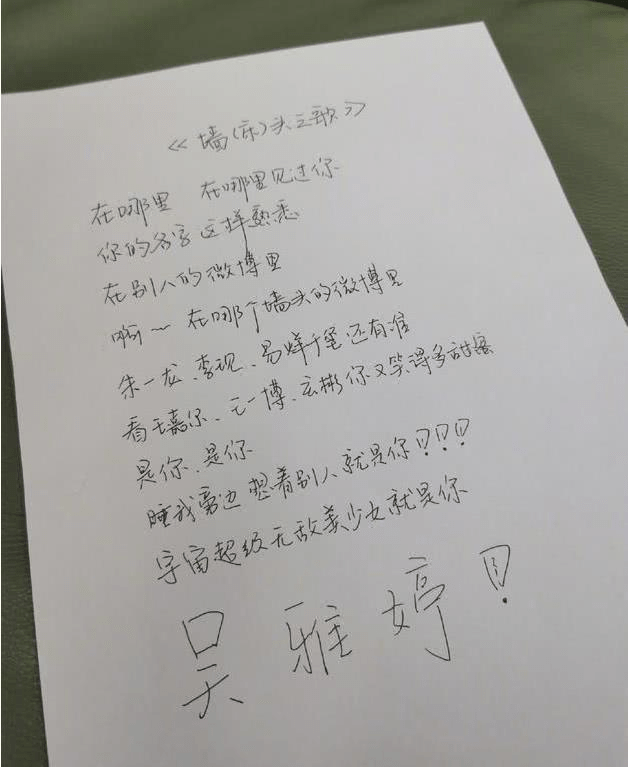 《墙(床)头之歌》
在哪里 在哪里见过你
你的名字这样熟悉
在别人的微博里
啊～在哪个墙头的微博里
朱一龙、李现、易烊千玺还有谁
看王嘉尔、王一博、玄彬你又笑得多甜蜜
是你、是你
睡我旁边想着别人就是你!!!
宇宙超级无敌美少女就是你
吴雅婷!